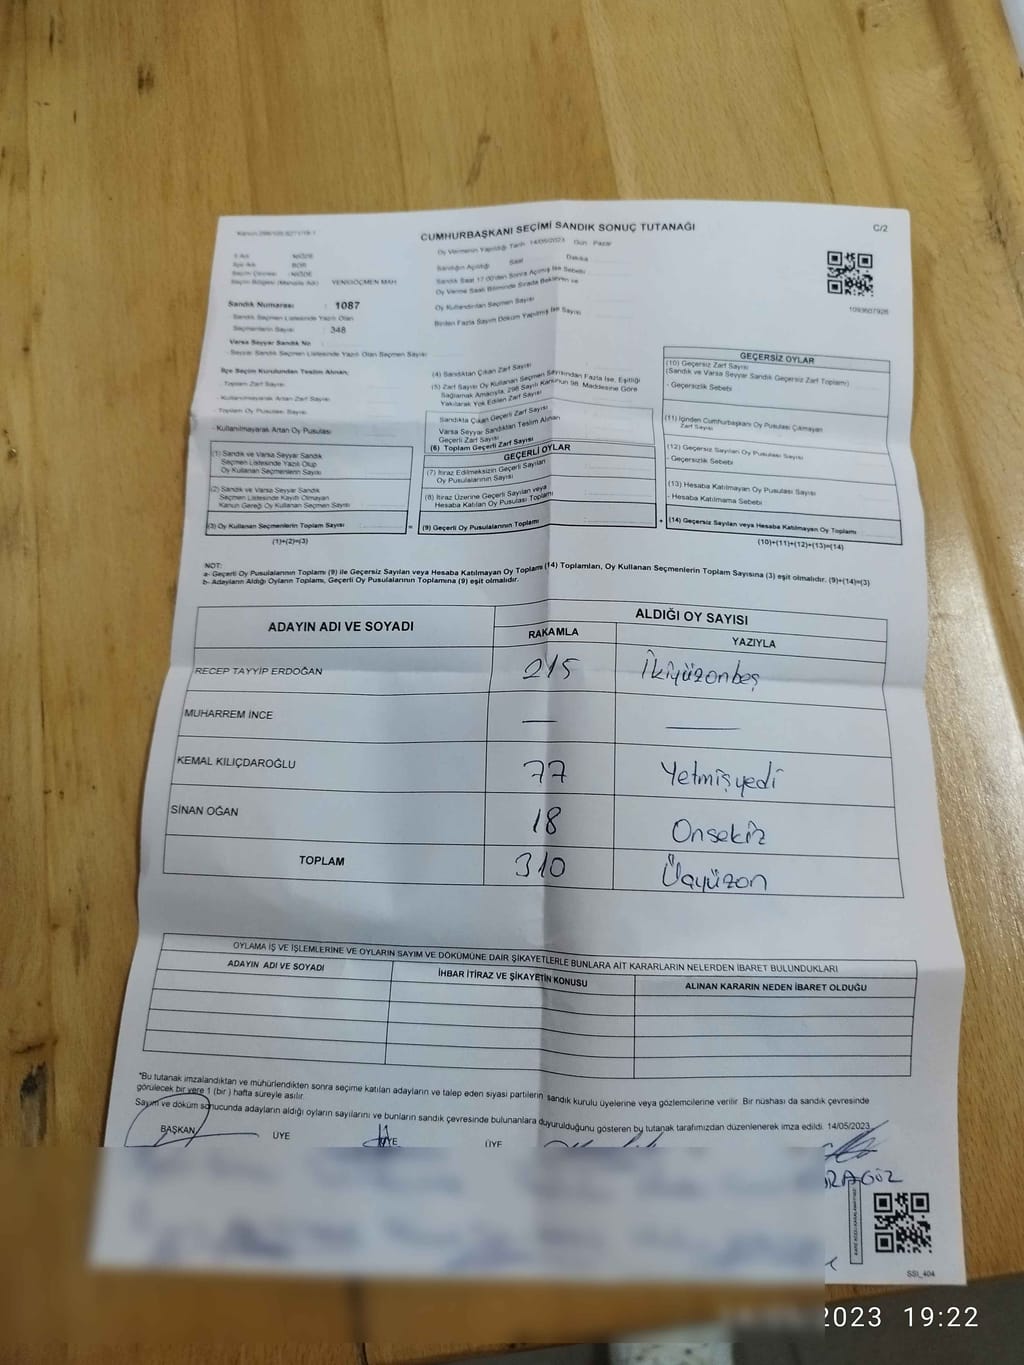 CUMHURBAŞKANI SEÇİMİ SANDIK SONUÇ TUTANAĞI
C/2
Oy Vermenin Yapıldığı Tarih 14/05/2023 Gün Pazar
Sandığın Açıldığı Saat Dakika
Sandık Saat 17:00'den Sonra Açılmış İse Sebebi
Oy Verme Saati Bitiminde Sırada Bekleyen ve
Oy Kullandırılan Seçmen Sayısı
Birden Fazla Sayım Döküm Yapılmış İse Sayısı
İl Adı : NİĞDE
İlçe Adı : BOR
Seçim Çevresi : NİĞDE
Seçim Bölgesi (Mahalle Adı) YENİGÖÇMEN MAH
Sandık Numarası : 1087
Sandık Seçmen Listesinde Yazılı Olan
Seçmenlerin Sayısı : 348
Varsa Seyyar Sandık No
- Seyyar Sandık Seçmen Listesinde Yazılı Olan Seçmen Sayısı
İlçe Seçim Kurulundan Teslim Alınan,
- Toplam Zarf Sayısı
- Kullanılmayarak Artan Zarf Sayısı
- Toplam Oy Pusulası Sayısı
- Kullanılmayarak Artan Oy Pusulası
(1) Sandık ve Varsa Seyyar Sandık
Seçmen Listesinde Yazılı Olup
Oy Kullanan Seçmenlerin Sayısı
(2) Sandık ve Varsa Seyyar Sandık
Seçmen Listesinde Kayıtlı Olmayan
Kanun Gereği Oy Kullanan Seçmen Sayısı
(3) Oy Kullanan Seçmenlerin Toplam Sayısı
(1)+(2)=(3)
(4) Sandıktan Çıkan Zarf Sayısı
(5) Zarf Sayısı Oy Kullanan Seçmen Sayısından Fazla İse, Eşitliği
Sağlamak Amacıyla, 298 Sayılı Kanunun 98. Maddesine Göre
Yakılarak Yok Edilen Zarf Sayısı
Sandıkta Çıkan Geçerli Zarf Sayısı
Varsa Seyyar Sandıktan Teslim Alınan
Geçerli Zarf Sayısı
(6) Toplam Geçerli Zarf Sayısı
GEÇERLİ OYLAR
(7) İtiraz Edilmeksizin Geçerli Sayılan
Oy Pusulalarının Sayısı
(8) İtiraz Üzerine Geçerli Sayılan veya
Hesaba Katılan Oy Pusulası Toplamı
= (9) Geçerli Oy Pusulalarının Toplamı
1093607926
GEÇERSİZ OYLAR
(10) Geçersiz Zarf Sayısı
(Sandık ve Varsa Seyyar Sandık Geçersiz Zarf Toplamı)
- Geçersizlik Sebebi
(11) İçinden Cumhurbaşkanı Oy Pusulası Çıkmayan
Zarf Sayısı
(12) Geçersiz Sayılan Oy Pusulası Sayısı
- Geçersizlik Sebebi
(13) Hesaba Katılmayan Oy Pusulası Sayısı
- Hesaba Katılmama Sebebi
+ (14) Geçersiz Sayılan veya Hesaba Katılmayan Oy Toplamı
(10)+(11)+(12)+(13)=(14)
NOT:
a- Geçerli Oy Pusulaları Toplamı (9) ile Geçersiz Sayılan veya Hesaba Katılmayan Oy Toplamı (14) Toplamları, Oy Kullanan Seçmenlerin Toplam Sayısına (3) eşit olmalıdır. (9)+(14)=(3)
b- Adayların Aldığı Oyların Toplamı, Geçerli Oy Pusulalarının Toplamına (9) eşit olmalıdır.
ADAYIN ADI VE SOYADI
ALDIĞI OY SAYISI
RAKAMLA YAZIYLA
RECEP TAYYİP ERDOĞAN 215 İkiyüzonbeş
MUHARREM İNCE — —
KEMAL KILIÇDAROĞLU 77 Yetmişyedi
SİNAN OĞAN 18 Onsekiz
TOPLAM 310 Üçyüzon
OYLAMA İŞ VE İŞLEMLERİNE VE OYLARIN SAYIM VE DÖKÜMÜNE DAİR ŞİKAYETLERLE BUNLARA AİT KARARLARIN NELERDEN İBARET BULUNDUKLARI
ADAYIN ADI VE SOYADI İHBAR İTİRAZ VE ŞİKAYETİN KONUSU ALINAN KARARIN NEDEN İBARET OLDUĞU
*Bu tutanak imzalandıktan ve mühürlendikten sonra seçime katılan adayların ve talep eden siyasi partilerin sandık kurulu üyelerine veya gözlemcilerine verilir. Bir nüshası da sandık çevresinde
görülecek bir yere 1 (bir ) hafta süreyle asılır.
Sayım ve döküm sonucunda adayların aldığı oyların sayılarını ve bunların sandık çevresinde bulunanlara duyurulduğunu gösteren bu tutanak tarafımızdan düzenlenerek imza edildi. 14/05/2023
BAŞKAN ÜYE ÜYE ÜYE
RAGÖZ
SSİ_404
2023 19:22